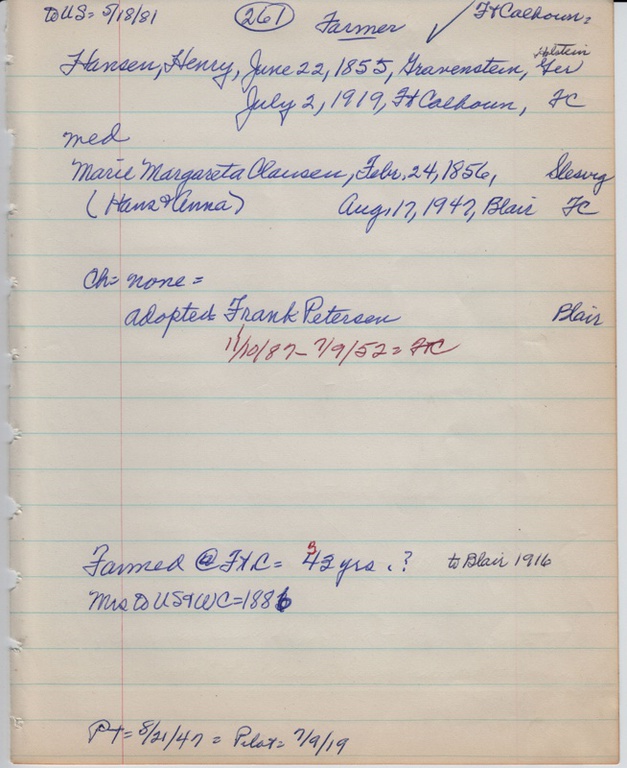 to US = 5/18/81 261 Farmer ✓ Ft Calhoun =
Holstein
Hansen, Henry, June 22, 1855, Gravenstein, Ger
July 2, 1919, Ft Calhoun, FC
med
Marie Margareta Clausen, Febr. 24, 1856, Slesvig
(Hans & Anna) Aug. 17, 1947, Blair FC
Ch = none =
adopted = Frank Petersen Blair
11/10/87 - 7/9/52 = FC
Farmed @ Ft C = 43 yrs. ? to Blair 1916
Mrs to US & WC = 1886
PT = 8/21/47 = Pilot = 7/9/19